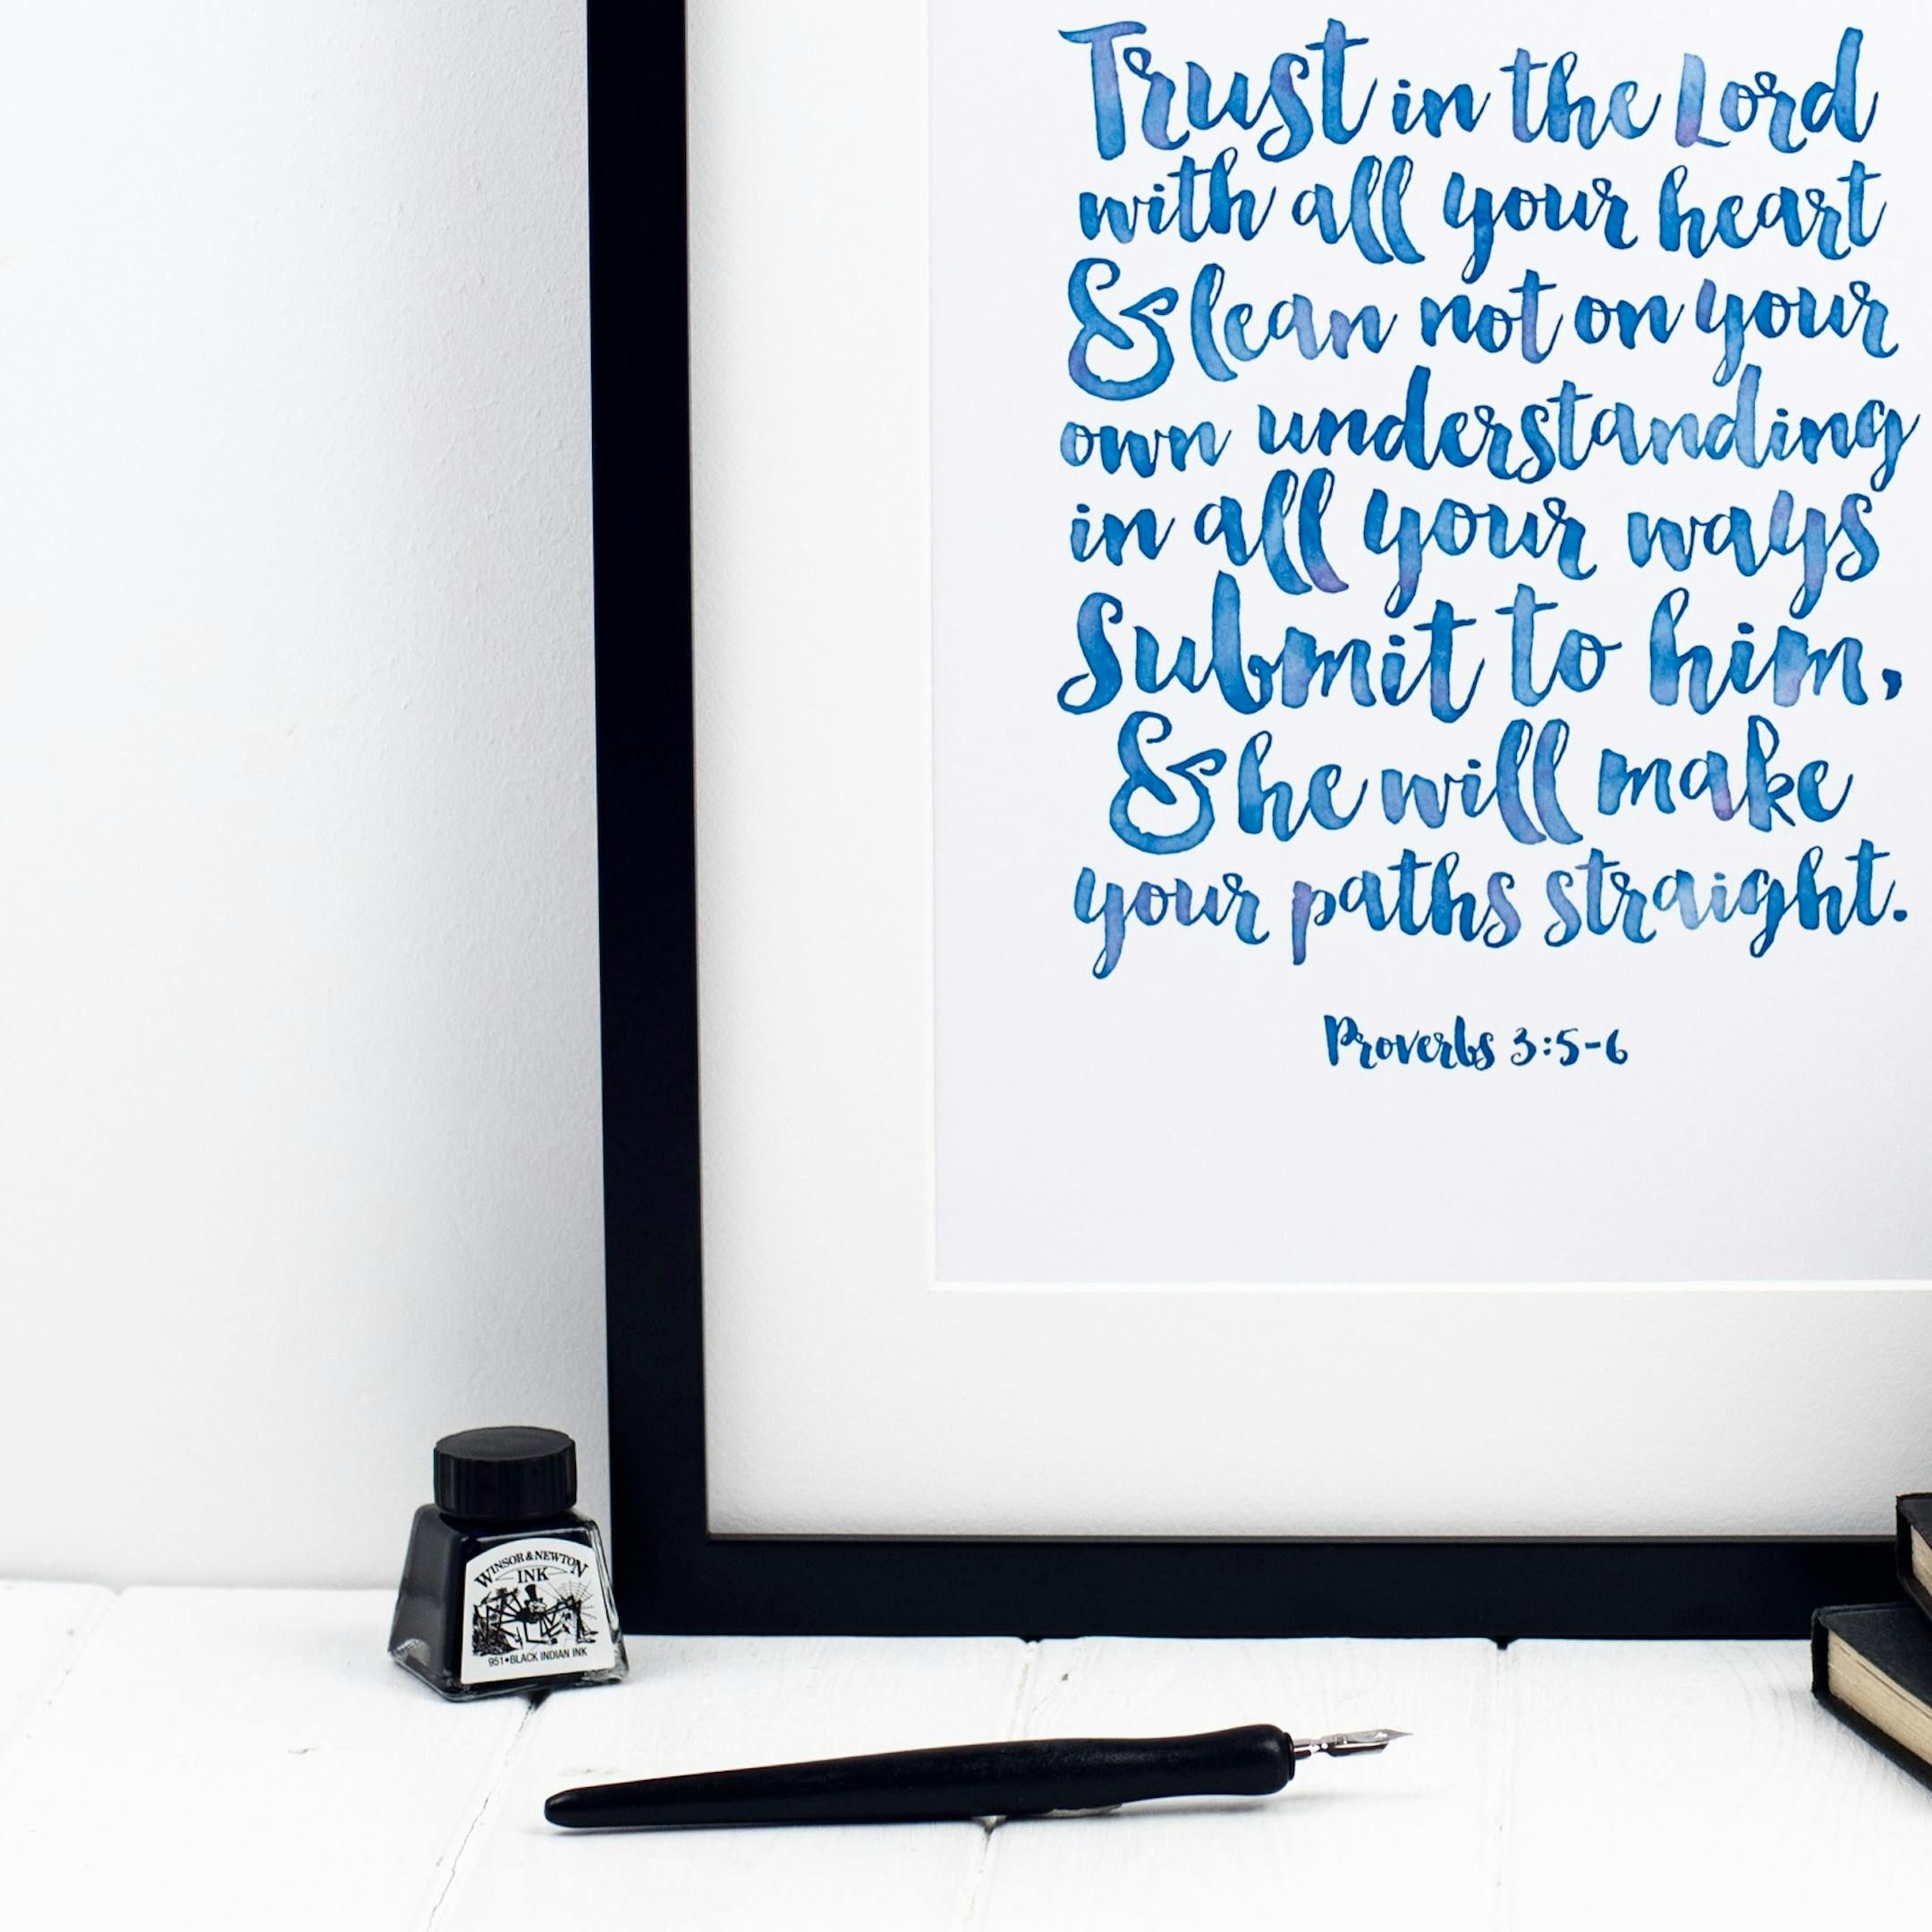 Trust in the Lord
with all your heart
& lean not on your
own understanding
in all your ways
Submit to him,
& he will make
your paths straight.
Proverbs 3:5-6
WINSOR & NEWTON
INK
951•BLACK INDIAN INK